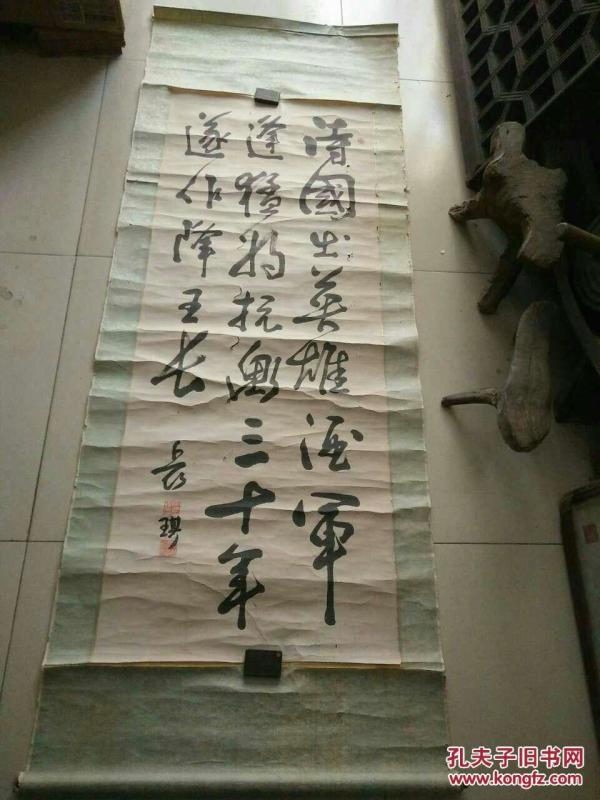 詩國出英雄酒軍
逢猛将抗衡三十年
遂作降王长
孔夫子旧书网
www.kongfz.com